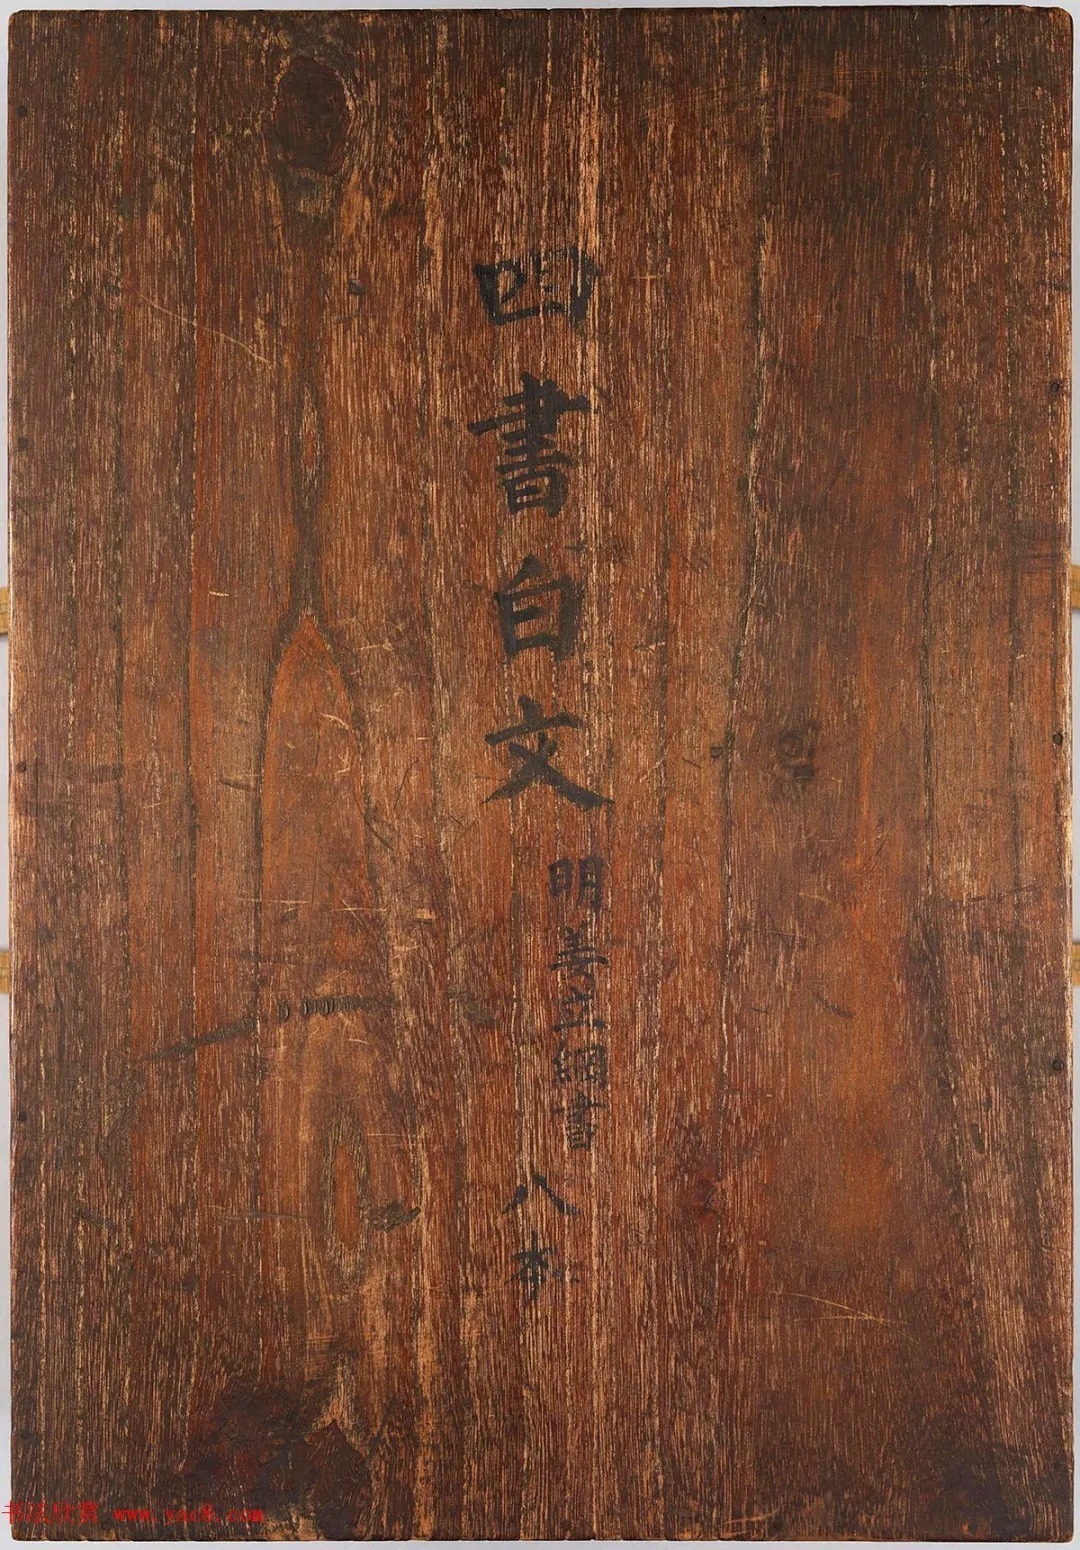 四書白文
明姜立綱書
八本
书法欣赏 www.yac8.com